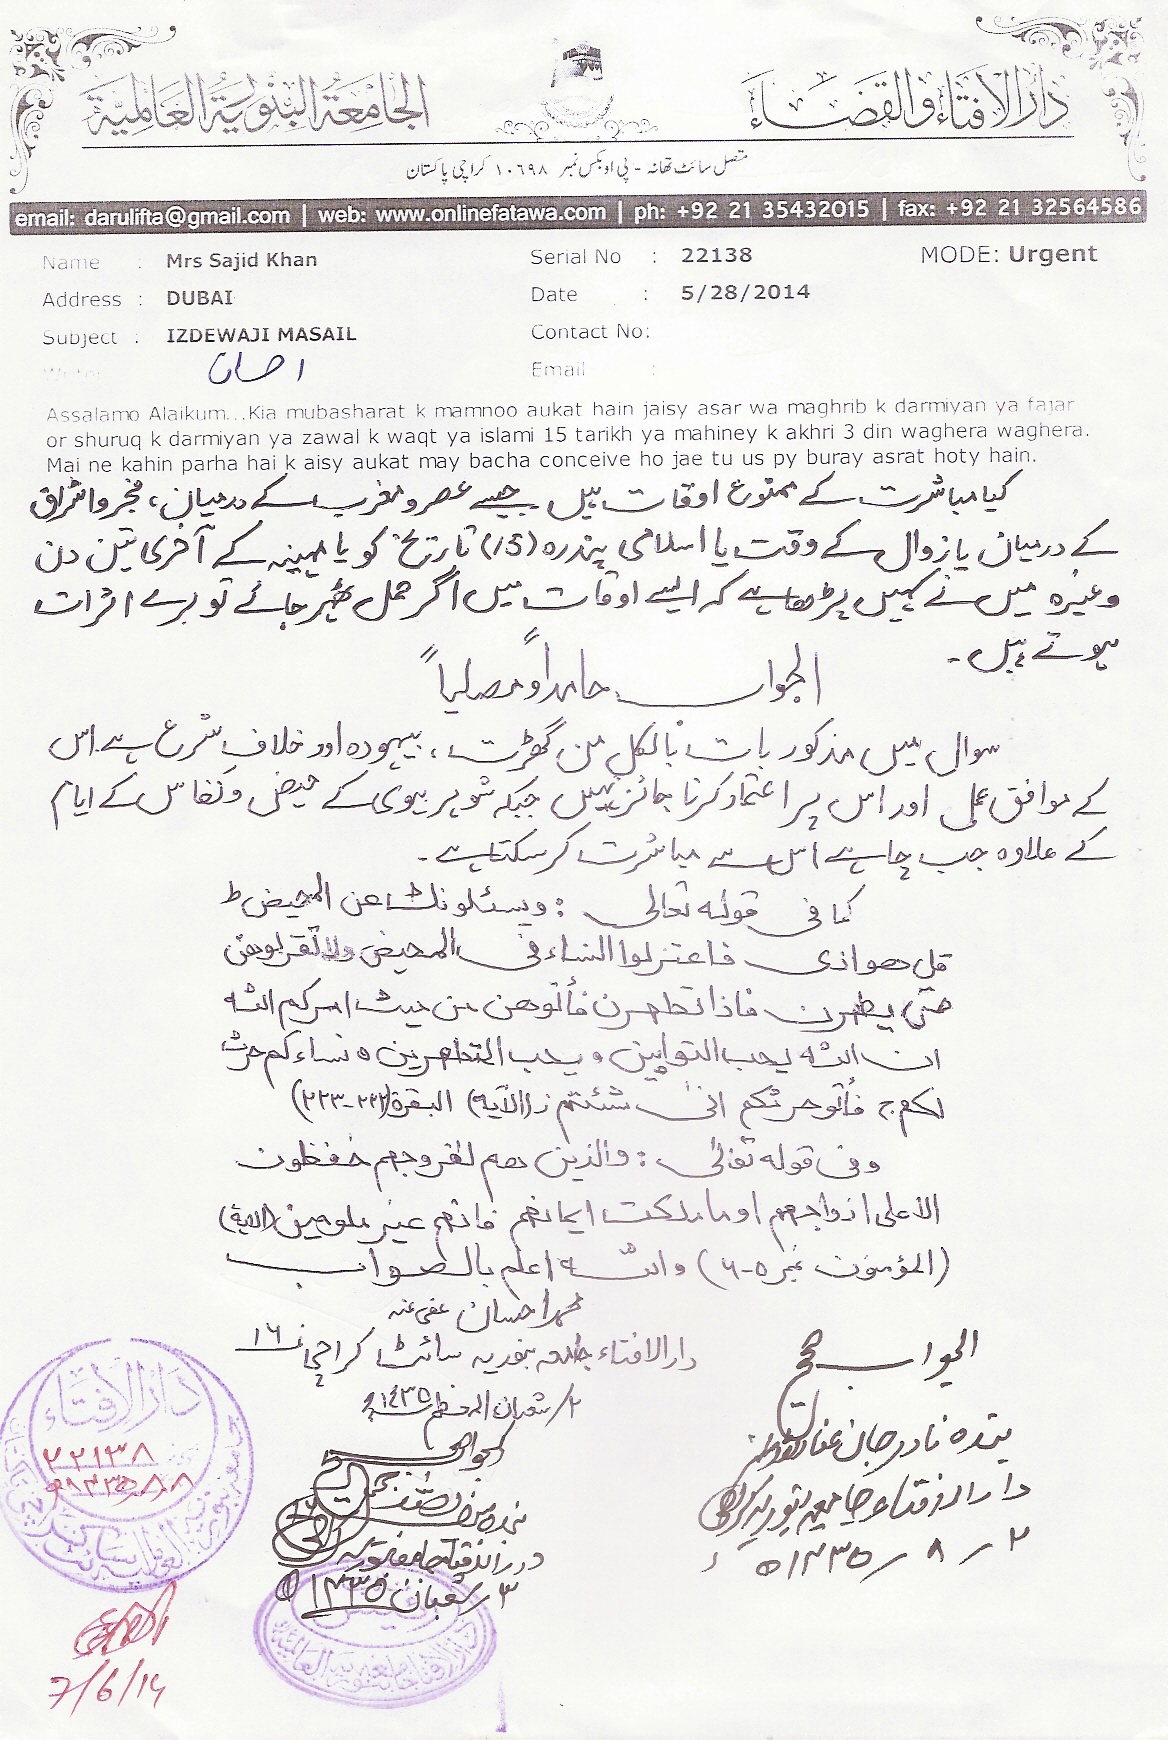 دار الافتاء والقضاء
الجامعة البنورية العالمية
متصل سائٹ تھانہ - پی او بکس نمبر ۱۰۶۹۸ کراچی پاکستان
email: darulifta@gmail.com | web: www.onlinefatawa.com | ph: +92 21 35432015 | fax: +92 21 32564586
Name : Mrs Sajid Khan Serial No : 22138 MODE: Urgent
Address : DUBAI Date : 5/28/2014
Subject : IZDEWAJI MASAIL Contact No:
Writer احسان Email :
Assalamo Alaikum...Kia mubasharat k mamnoo aukat hain jaisy asar wa maghrib k darmiyan ya fajar
or shuruq k darmiyan ya zawal k waqt ya islami 15 tarikh ya mahiney k akhri 3 din waghera waghera.
Mai ne kahin parha hai k aisy aukat may bacha conceive ho jae tu us py buray asrat hoty hain.
کیا مباشرت کے ممنوع اوقات ہیں جیسے عصر و مغرب کے درمیان، فجر و اشراق
کے درمیان یا زوال کے وقت یا اسلامی پندرہ (15) تاریخ کو یا مہینہ کے آخری تین دن
وغیرہ میں نے کہیں پڑھا ہے کہ ایسے اوقات میں اگر حمل ٹھہر جائے تو برے اثرات
ہوتے ہیں۔
الجواب حامداً ومصلیاً
سوال میں مذکور بات بالکل من گھڑت، بیہودہ اور خلاف شرع ہے اس
کے موافق عمل اور اس پر اعتماد کرنا جائز نہیں جبکہ شوہر بیوی کے حیض و نفاس کے ایام
کے علاوہ جب چاہے اس سے مباشرت کر سکتا ہے۔
کما فی قولہ تعالی : ویسئلونک عن المحیض ط
قل ھو اذی فاعتزلوا النساء فی المحیض ولا تقربوھن
حتی یطھرن فاذا تطھرن فأتوھن من حیث امرکم اللہ
ان اللہ یحب التوابین و یحب المتطھرین o نساءکم حرث
لکم ج فأتو حرثکم انیٰ شئتم ز (الآیة) البقرة (۲۲۲-۲۲۳)
وفی قولہ تعالیٰ : والذین ھم لفروجھم حٰفظون
الا علی ازواجھم او ما ملکت ایمانھم فانھم غیر ملومین (الایة)
(المؤمنون نمبر ۵-۶) واللہ اعلم بالصواب
محمد احسان عفی عنہ
دار الافتاء جامعہ بنوریہ سائٹ کراچی نمبر ۱۶
۲/ شعبان المعظم ۱۴۳۵ھ
الجواب صحیح
بندہ نادر جان عفا اللہ عنہ
دار الافتاء جامعہ بنوریہ کراچی
۲ - ۸ - ۱۴۳۵ھ
الجواب صحیح
دار الافتاء جامعہ بنوریہ کراچی
۳/ شعبان ۱۴۳۵ھ
دار الافتاء
۲۲۱۳۸
دار الافتاء جامعہ بنوریہ العالمیہ
7/6/14